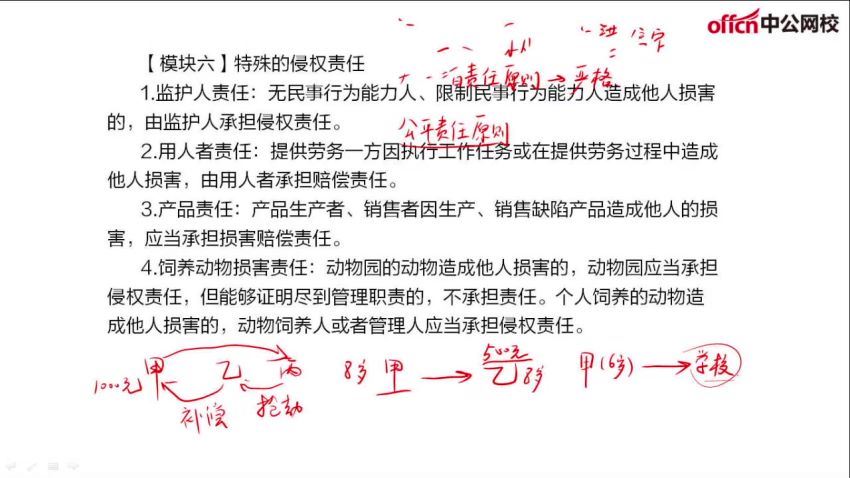 offcn中公网校
【模块六】特殊的侵权责任
责任原则→严格
1.监护人责任：无民事行为能力人、限制民事行为能力人造成他人损害
的，由监护人承担侵权责任。
公平责任原则
2.用人者责任：提供劳务一方因执行工作任务或在提供劳务过程中造成
他人损害，由用人者承担赔偿责任。
3.产品责任：产品生产者、销售者因生产、销售缺陷产品造成他人的损
害，应当承担损害赔偿责任。
4.饲养动物损害责任：动物园的动物造成他人损害的，动物园应当承担
侵权责任，但能够证明尽到管理职责的，不承担责任。个人饲养的动物造
成他人损害的，动物饲养人或者管理人应当承担侵权责任。
1000元 甲 乙 丙
补偿 抢劫
8岁 甲 → 500元 乙 8岁
甲(6岁) → 学校